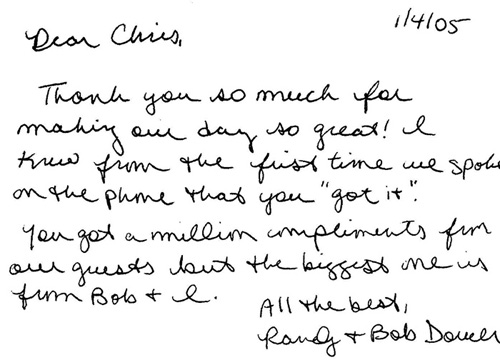 1/4/05
Dear Chris,
Thank you so much for
making our day so great! I
knew from the first time we spoke
on the phone that you "got it".
You got a million compliments from
our guests but the biggest one is
from Bob + I.
All the best,
Randy + Bob